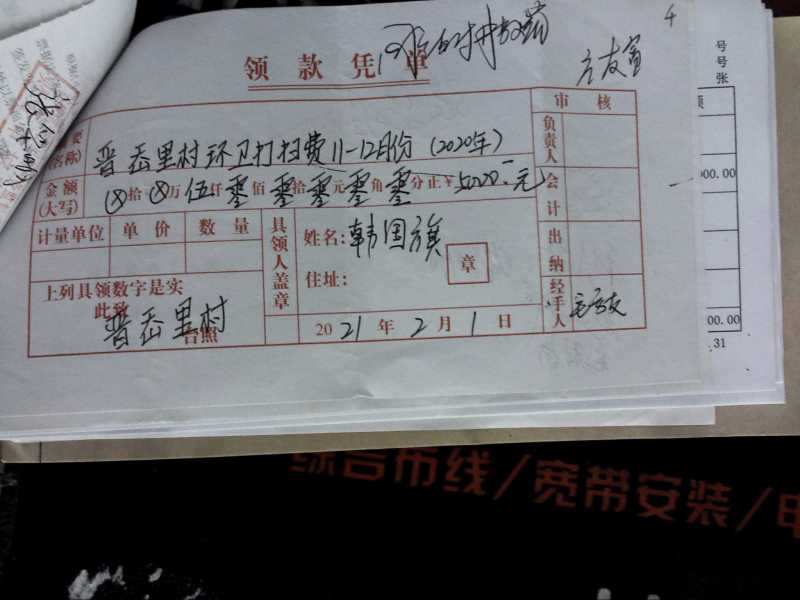 4
领款凭单
方友富
审核
摘要(名称) 普岙里村环卫打扫费11-12月份(2020年)
负责人
金额(大写) ⊗拾⊗万伍仟零佰零拾零元零角零分止¥5000.-元
会计
计量单位 单价 数量
具领人盖章
姓名:韩国旗
住址:
章
出纳
上列具领数字是实
此致
普岙里村
台照
2021年2月1日
经手人
号
号
张
000.00
000.00
.31
综合布线/宽带安装/电